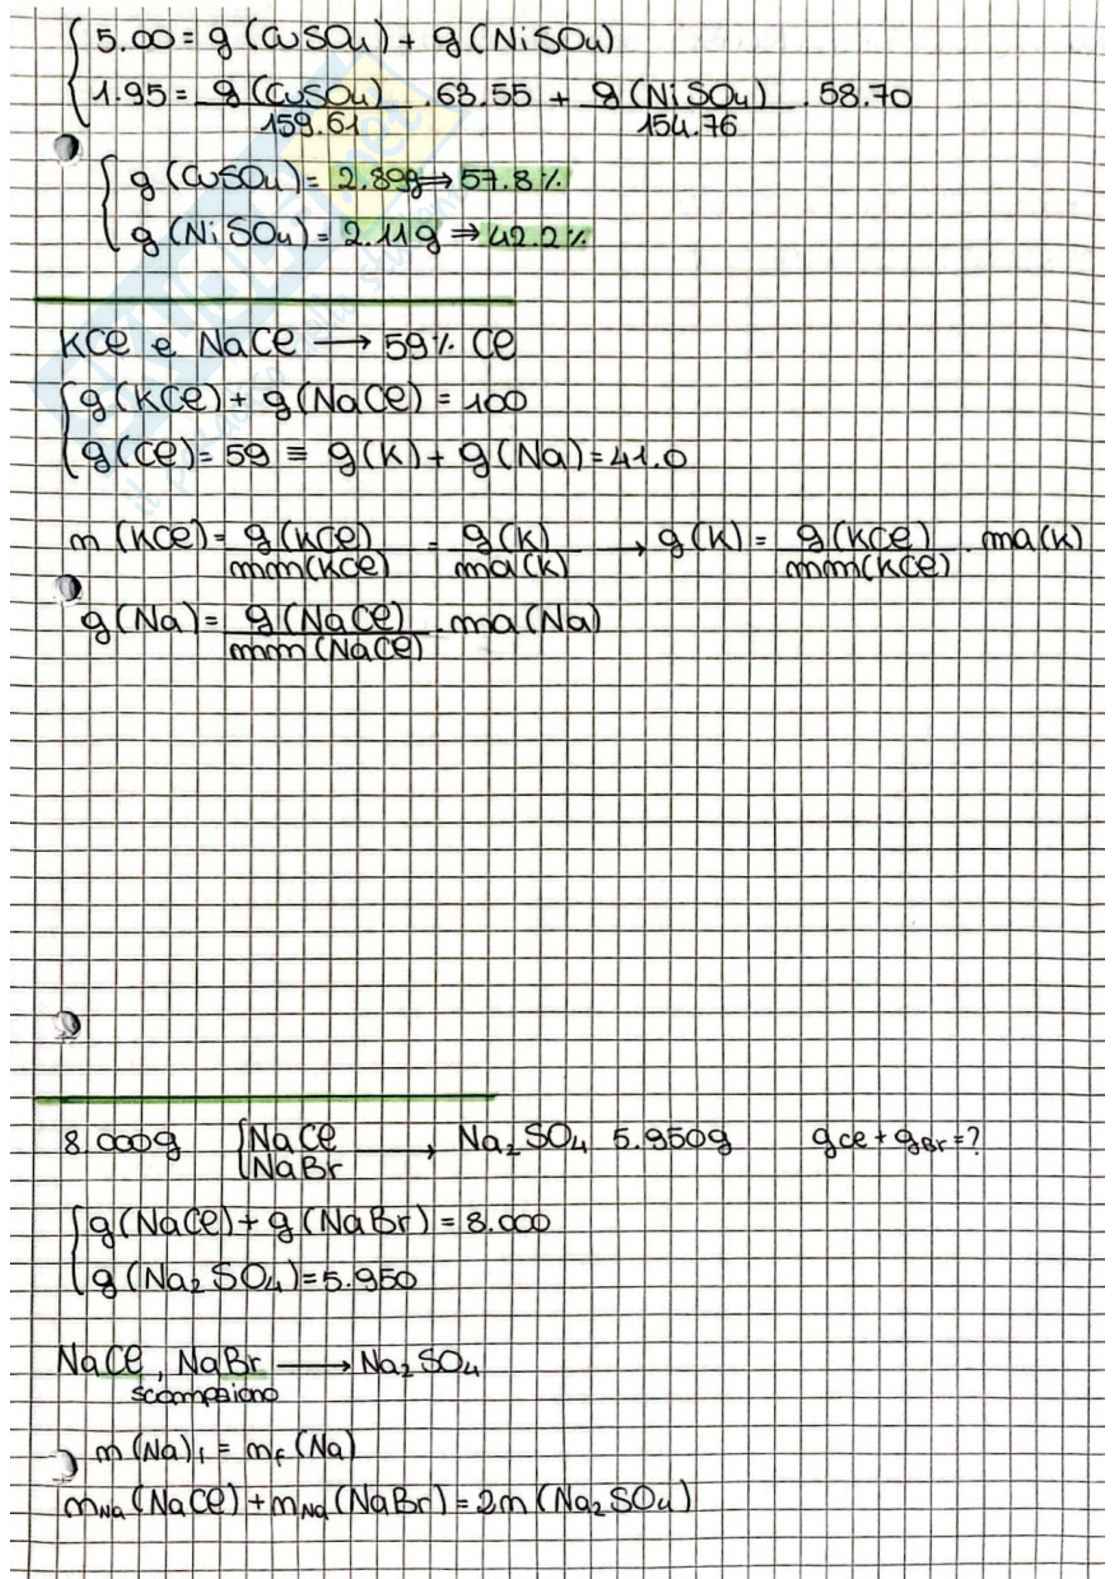 5.00 = g (CuSO4) + g (NiSO4)
1.95 = g (CuSO4)/159.61 · 63.55 + g (NiSO4)/154.76 · 58.70
g (CuSO4) = 2.89g ⇒ 57.8%
g (NiSO4) = 2.11g ⇒ 42.2%
KCl e NaCl → 59% Cl
g (KCl) + g (NaCl) = 100
g (Cl) = 59 ≡ g (K) + g (Na) = 41.0
n (KCl) = g (KCl)/mm(KCl) = g (K)/ma(K) → g (K) = g (KCl)/mm(KCl) · ma(K)
g (Na) = g (NaCl)/mm(NaCl) · ma(Na)
8.000g { NaCl NaBr → Na2SO4 5.950g gCl + gBr = ?
g (NaCl) + g (NaBr) = 8.000
g (Na2SO4) = 5.950
NaCl, NaBr → Na2SO4
scompaiono
n (Na)i = nf (Na)
nNa (NaCl) + nNa (NaBr) = 2n (Na2SO4)